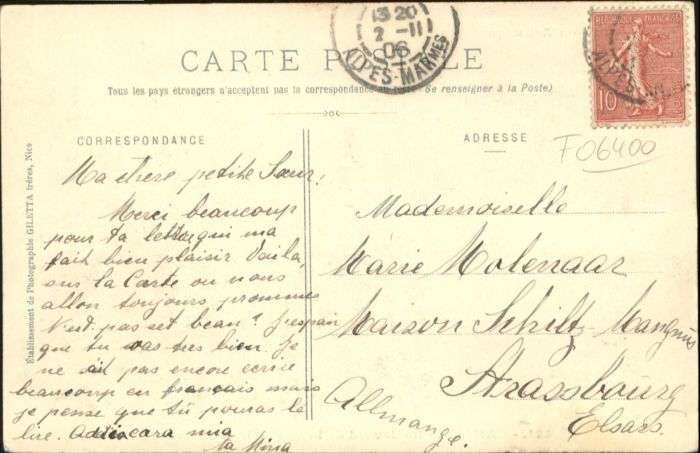 CARTE POSTALE
Tous les pays étrangers n'acceptent pas la correspondance au recto (Se renseigner à la Poste)
13 20
2 -11
06
ALPES-MARMES
REPUBLIQUE FRANÇAISE
10
CORRESPONDANCE
Ma chere petite Sœur!
Merci beaucoup
pour ta lettre qui ma
fait bien plaisir Voila,
sur la Carte ou nous
allon toujours prommes
N'est pas set beau? J'espair
que tu vas tres bien. Je
ne sait pas encore ecrire
beaucoup en francais mais
je pense que tu pouras le
lire. Adtio cara mia
ta Mina
ADRESSE
F06400
Mademoiselle
Marie Molenaar
Maison Schiltz-Mangnus
Strassbourg
Allmange. Elsass
Établissement de Photographie GILETTA frères, Nice